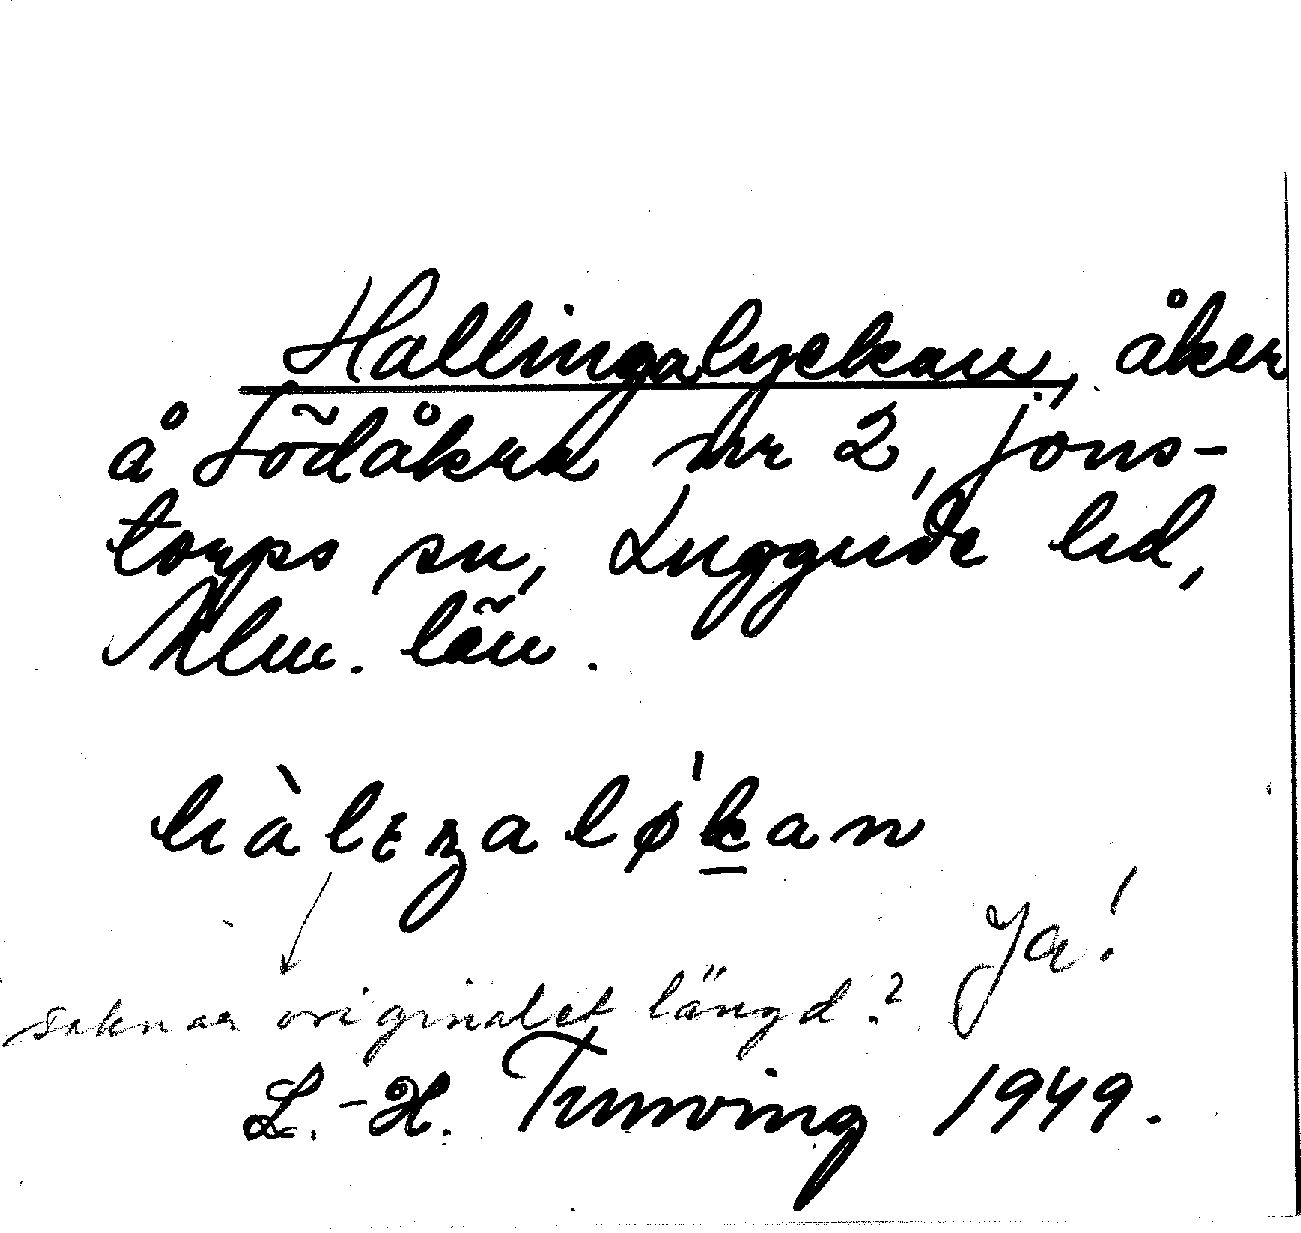 Hallingalyckan, åker
å Södåkra nr 2, Jons-
torps sn, Luggude hd,
Mlm. län.
hàlɩŋaløˈk̲an
saknar originalet längd? Ja!
L.-H. Tunving 1949.